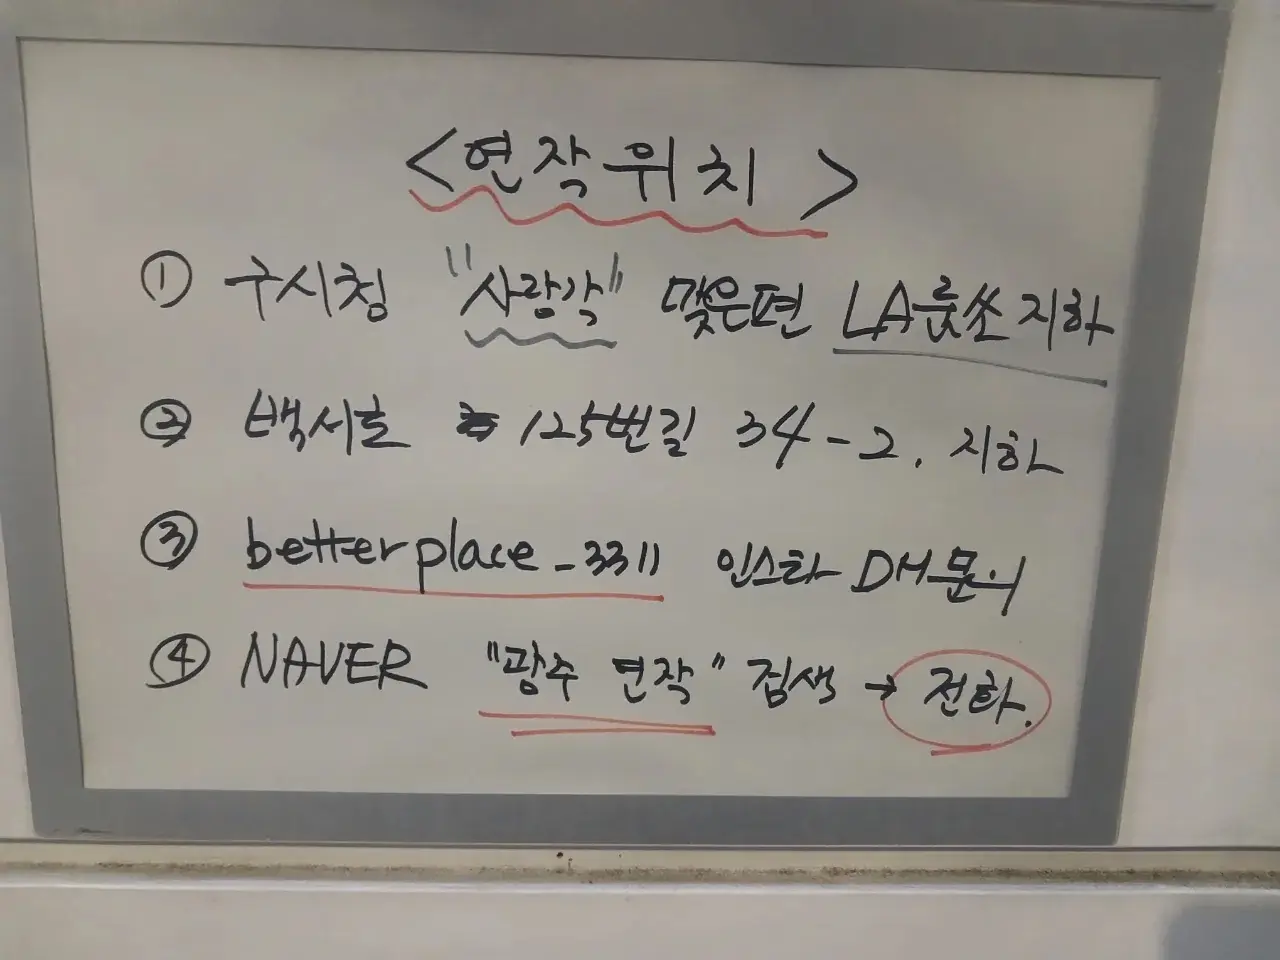 <연작위치>
① 구시청 "사랑각" 맞은편 LA룸쏘 지하
② 백서로 125번길 34-2. 지하
③ betterplace_3311 인스타 DM문의
④ NAVER "광주 연작" 검색 → 전화.